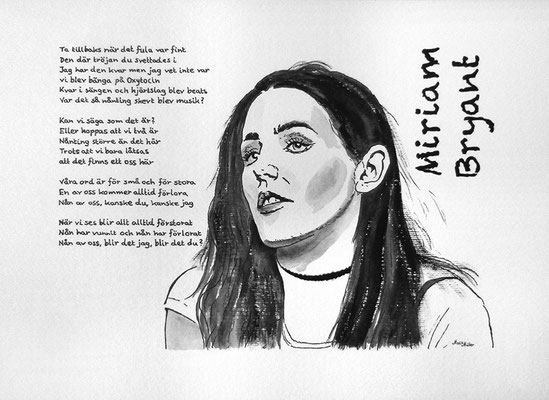 Ta tillbaks när det fula var fint
Den där tröjan du svettades i
Jag har den kvar men jag vet inte var
vi blev bänga på Oxytocin
Kvar i sängen och hjärtslag blev beats
Var det så nånting skevt blev musik?

Kan vi säga som det är?
Eller hoppas att vi två är
Nånting större än det här
Trots att vi bara låtsas
att det finns ett oss här

Våra ord är för små och för stora
En av oss kommer alltid förlora
Nån av oss, kanske du, kanske jag

När vi ses blir allt alltid förstorat
Nån har vunnit och nån har förlorat
Nån av oss, blir det jag, blir det du?

Miriam
Bryant